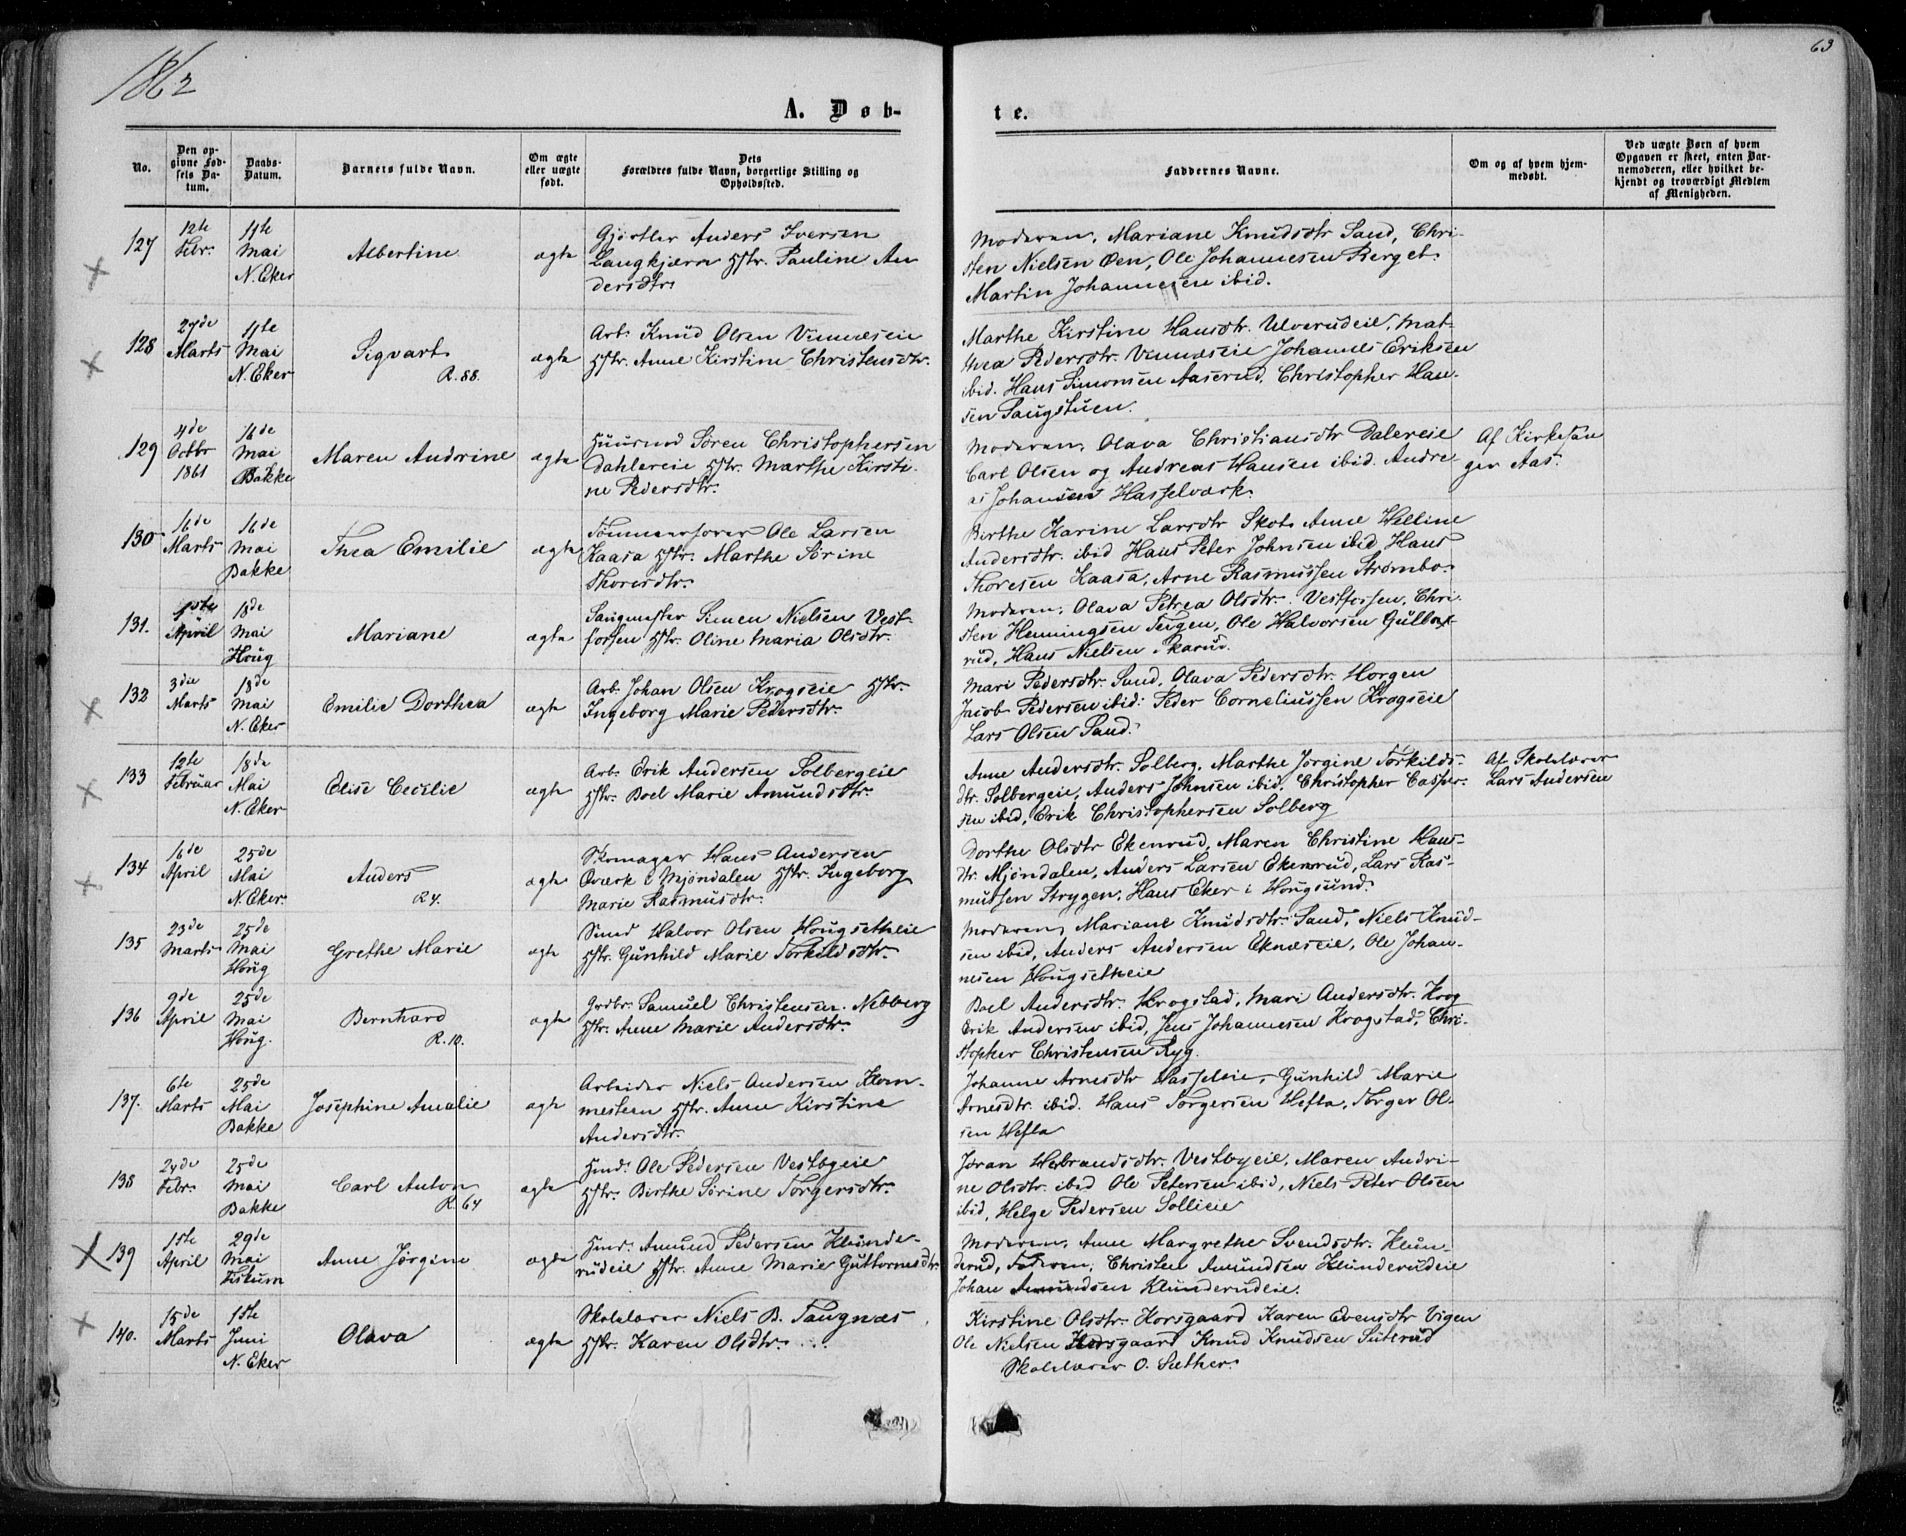 1862
63
A. Døb-
te.
No.
Den op-
givne Fød-
sels Da-
tum.
Daabs-
Datum.
Barnets fulde Navn.
Om ægte
eller uægte
født.
Dets
Forældres fulde Navn, borgerlige Stilling og
Opholdssted.
Faddernes Navne.
Om og af hvem hjem-
medøbt.
Ved uægte Børn af hvem
Opgaven er skeet, enten Bar-
nemoderen, eller hvilket be-
kjendt og troværdigt Medlem
af Menigheden.
127
12te
Febr.
11te
Mai
N. Eker
Albertine
ægte
Gjørtler Anders Iversen
Langkjærn Hstr. Pauline An
dersdtr.
Moderen, Mariane Knudsdtr Sand, Chri-
sten Nielsen Øen, Ole Johannesen Berget
Martin Johannesen ibid.
128
27de
Marts
11te
Mai
N. Eker
Sigvart
R. 88.
ægte
Arb. Knud Olsen Vinnæseie
Hstr. Anne Kirstine Christensdtr.
Marthe Kirstine Hansdtr. Ulverudeie, Mat-
thea Pedersdtr. Vinnæseie Johannes Eriksen
ibid. Hans Simonsen Aaserud, Christopher Han-
sen Saugstuen.
129
4de
Octbr
1861
16de
Mai
Bakke
Maren Andrine
ægte
Huusmd Søren Christophersen
Dahlereie Hstr. Marthe Kirsti-
ne Pedersdtr.
Moderen, Olava Christiansdtr Dalereie
Carl Olsen og Andreas Hansen ibid. Andre-
as Johansen Hasselværk.
Af Kirkesan
ger Aas.
130
16de
Marts
16de
Mai
Bakke
Thea Emilie
ægte
Tømmermand Ole Larsen
Kaasa Hstr. Marthe Sørine
Thoresdtr.
Birthe Karine Larsdtr Skots Anne Helline
Andersdtr. ibid Hans Peter Johnsen ibid Hans
Thoresen Kaasa, Arne Rasmussen Strømbo.
131.
1ste
April
18de
Mai
Houg
Mariane
ægte
Saugmester Simen Nielsen Vest-
fossen Hstr. Oline Maria Olsdtr.
Moderen, Olava Petrea Olsdtr. Vestfossen, Chri-
sten Henningsen Teigen, Ole Halvorsen Gulbæk-
rud, Hans Nielsen Skarud.
132
3die
Marts
18de
Mai
N. Eker
Emilie Dorthea
ægte
Arb. Johan Olsen Krogseie Hstr.
Ingeborg Marie Pedersdtr.
Mari Pedersdtr. Sand, Olava Pedersdtr. Horgen
Jacob Pedersen ibid: Peder Corneliussen Krogseie
Lars Olsen Sand.
133
12te
Februar
18de
Mai
N. Eker
Elise Cecilie
ægte
Arb. Erik Andersen Solbergeie
Hstr. Boel Marie Amundsdtr.
Anne Andersdtr. Solberg, Marthe Jørgine Torkilds-
dtr. Solbergeie, Anders Johnsen ibid, Christopher Casper-
sen ibid, Erik Christophersen Solberg
Af Skolelærer
Lars Andersen
134
16de
April
25de
Mai
N. Eker.
Anders
R4.
ægte
Skomager Hans Andersen
Qværk i Mjøndalen Hstr. Ingeborg
Marie Rasmusdtr.
Dorthe Olsdtr Ekenrud, Maren Christine Hans-
dtr. Mjøndalen, Anders Larsen Ekenrud, Lars Ras-
mussen Strygen, Hans Eker i Hougsund.
135
23de
Marts
25de
Mai
Houg
Grethe Marie
ægte
Huusmd Halvor Olsen Hougsetheie
Hstr. Gunhild Marie Torkildsdtr.
Moderen, Mariane Knudsdtr. Sand, Niels Knud-
sen ibid, Anders Andersen Eknæseie, Ole Johan-
nesen Hougsetheie
136
9de
April
25de
Mai
Houg.
Bernhard
R. 10.
ægte
Grdbr. Samuel Christensen Nebberg
Hstr. Anne Marie Andersdtr.
Boel Andersdtr. Krogstad, Mari Andersdtr. Krog
Erik Andersen ibid, Jens Johannesen Krogstad, Chri-
stopher Christensen Ryg.
137.
6te
Marts
25de
Mai
Bakke
Josephine Amalie
ægte
Arbeider Niels Andersen Kom-
mesteen Hstr. Anne Kirstine
Andersdtr.
Johanne Arnesdtr Hasseleie, Gunhild Marie
Arnesdtr. ibid. Hans Torgersen Hefta, Torger Ol-
sen Hefta
138
24de
Febr.
25de
Mai
Bakke
Carl Anton
R. 64
ægte
Hmd. Ole Pedersen Vestbyeie
Hstr. Birthe Sørine Torgersdtr.
Jøran Hebrandsdtr. Vestbyeie, Maren Andri-
ne Olsdtr. ibid Ole Petersen ibid, Niels Peter Olsen
ibid, Helge Pedersen Sollieie
139
1ste
April
29de
Mai
Fiskum
Anne Jørgine
ægte
Hmd. Amund Pedersen Klunde-
rudeie Hstr. Anne Marie Guttormsdtr.
Moderen, Anne Margrethe Svendsdtr. Klun-
derud, Faderen, Christen Amundsen Klunderudeie
Johan Amundsen Klunderudeie.
140.
15de
Marts
1ste
Juni
N. Eker
Olava
ægte
Skolelærer Niels B. Taugnæs
Hstr. Karen Olsdtr.
Kirstine Olsdtr. Korsgaard Karen Evensdtr Vigen
Ole Nielsen Korsgaard Knud Knudsen Suterud
Skolelærer O. Sæther.